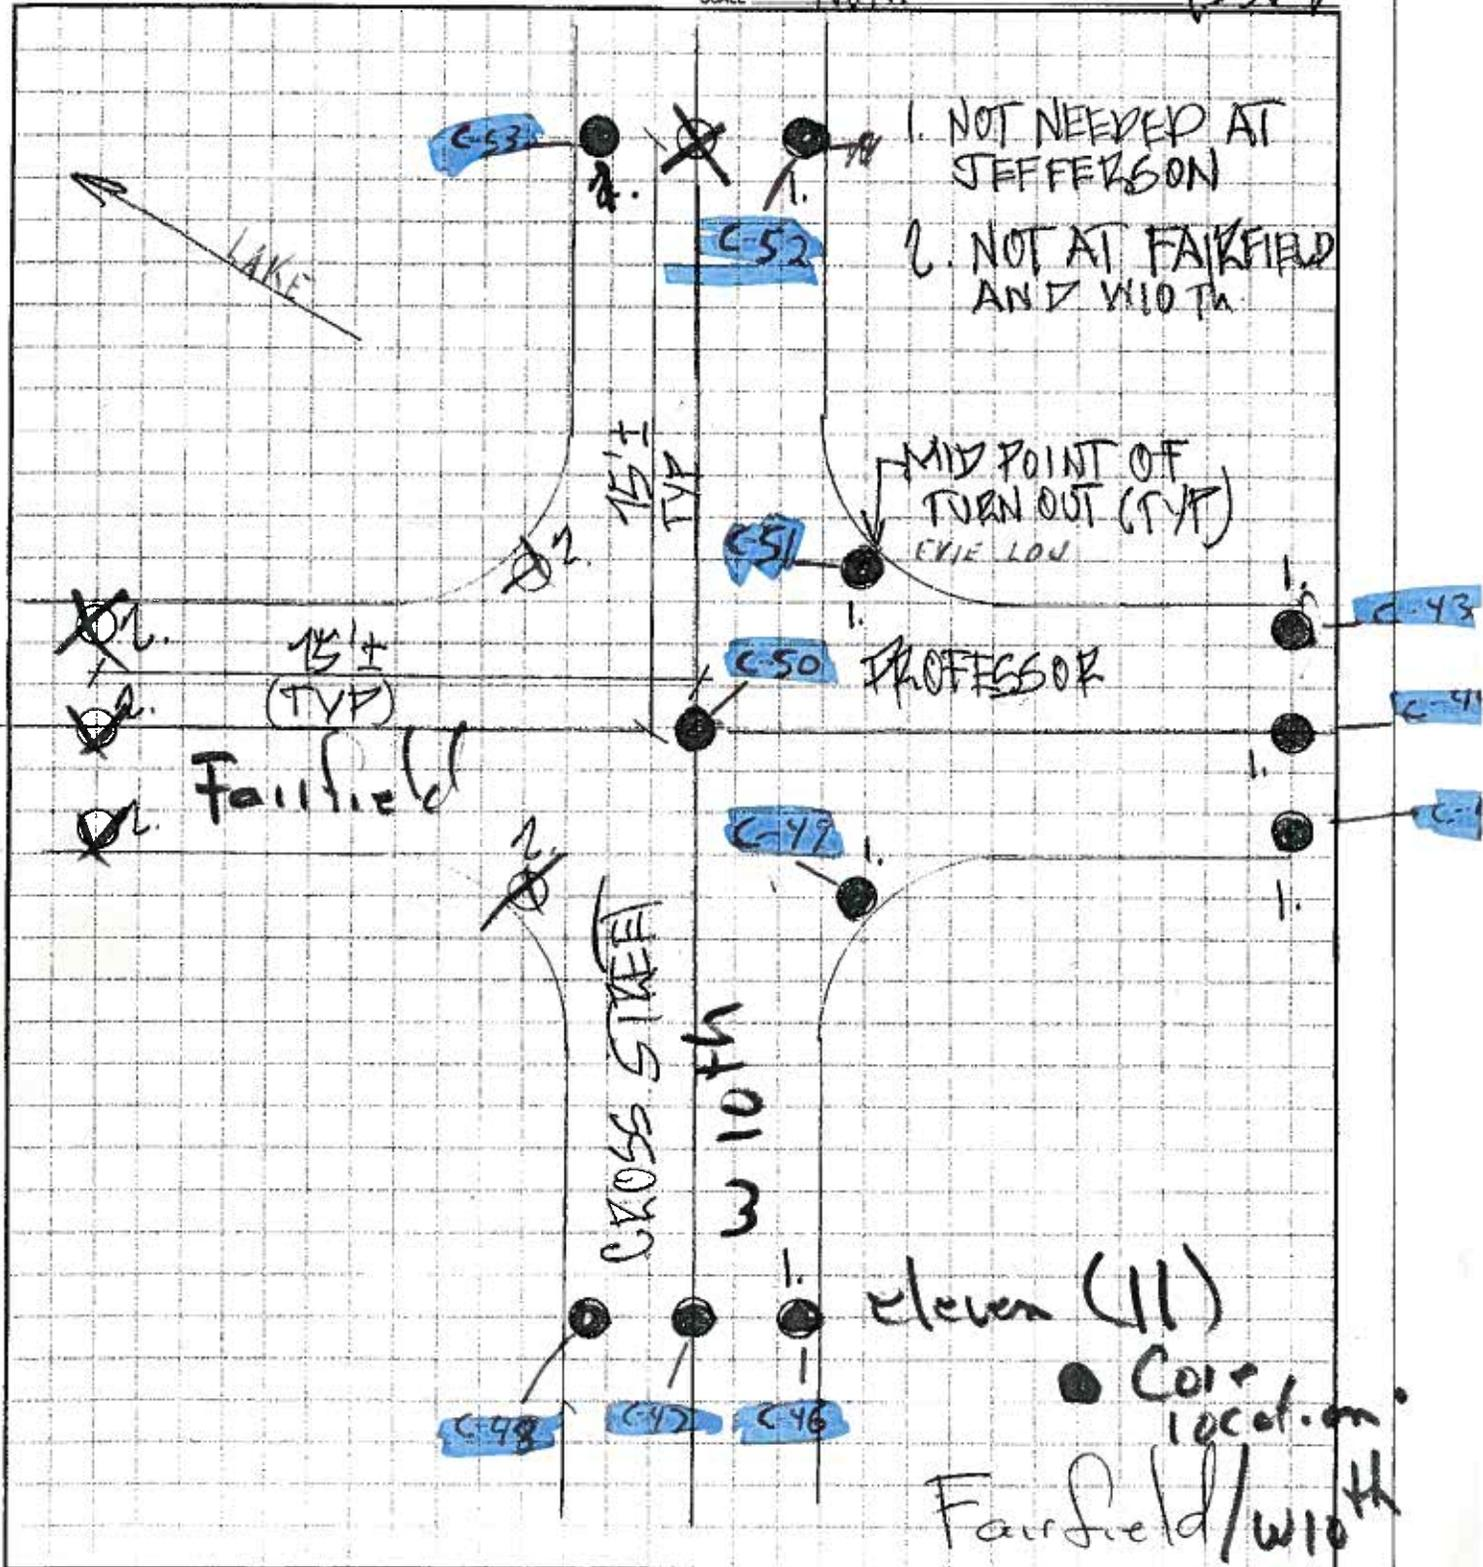 C-53
2.
1.
C-52
1. NOT NEEDED AT
JEFFERSON
2. NOT AT FAIRFIELD
AND W10Th
LAKE
15'±
TYP
MID POINT OF
TURN OUT (TYP)
2.
C-51
1.
1.
C-43
2.
15'±
(TYP)
C-50
PROFESSOR
2.
C-4
1.
Fairfield
2.
C-
2.
C-49
1.
1.
CROSS STREET
W 10th
1.
eleven (11)
Core
location
C-48
C-47
C-46
Fairfield/W10th